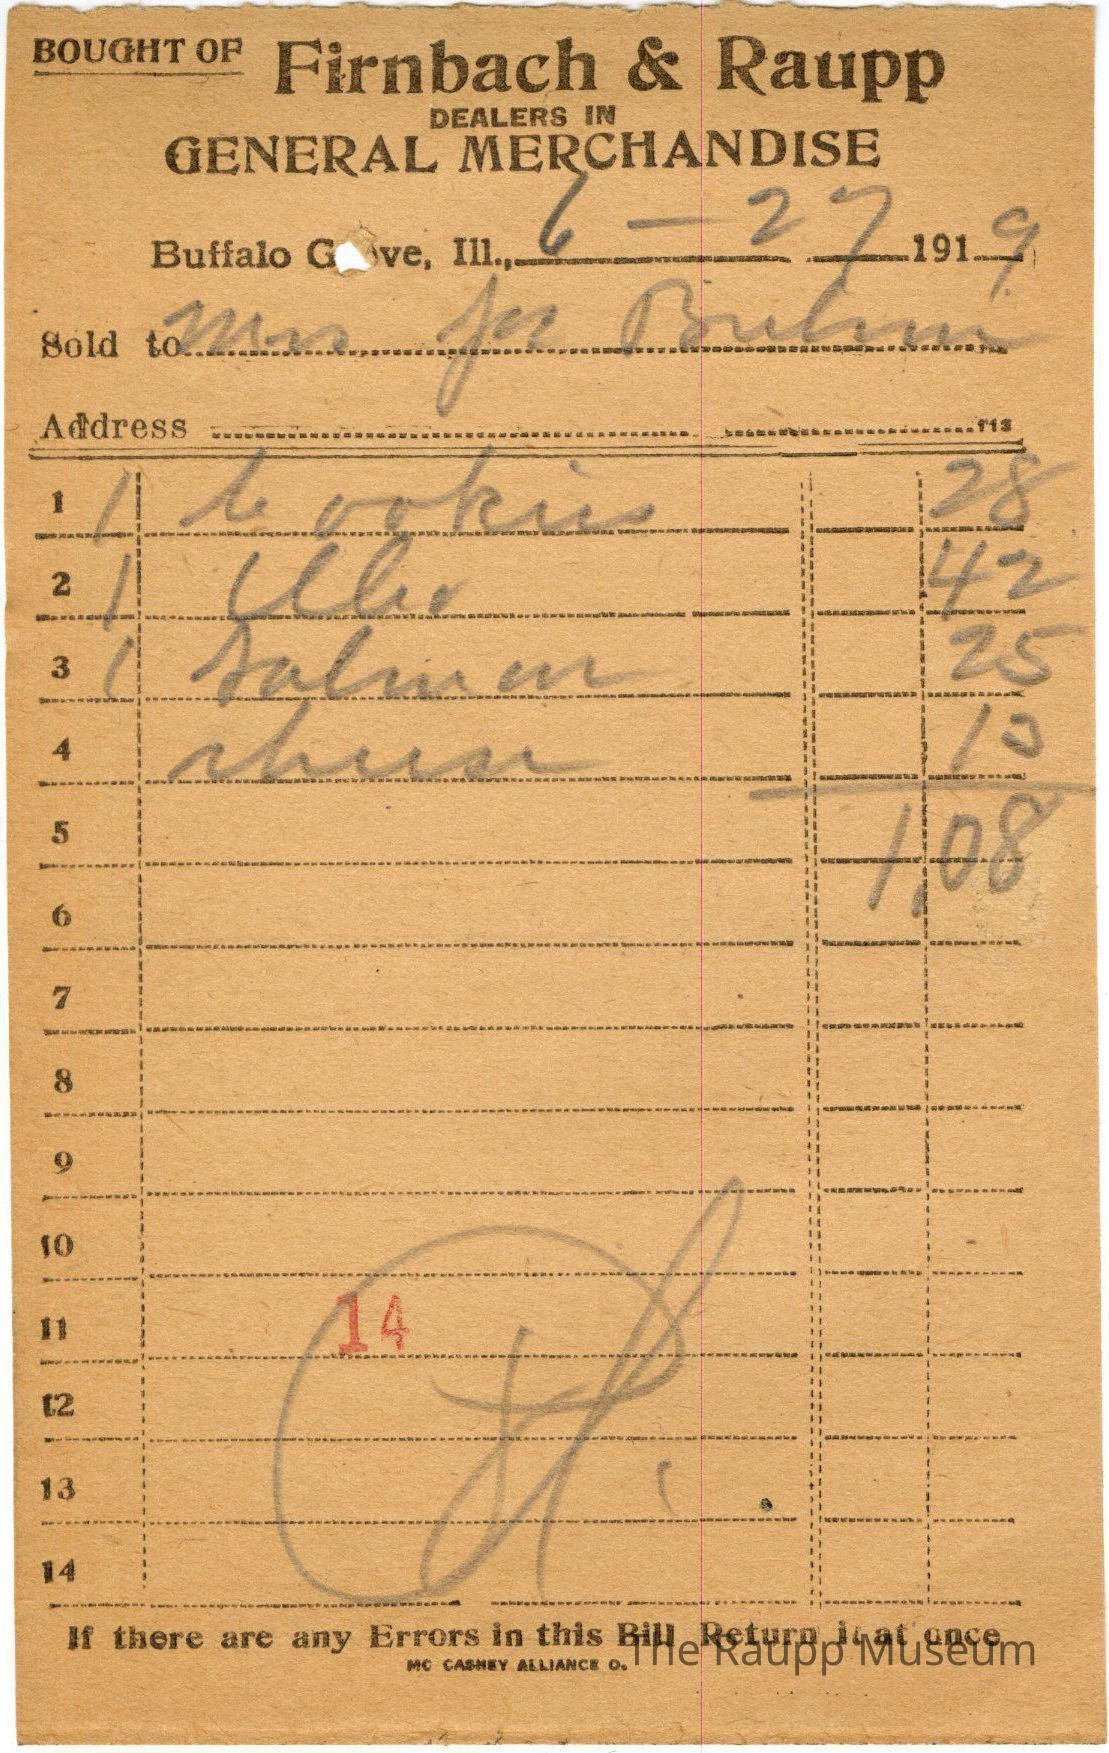 BOUGHT OF Firnbach & Raupp
DEALERS IN
GENERAL MERCHANDISE
Buffalo G ve, Ill., 6 - 27 1919
Sold to Mrs Jos
Address 713
1 1 Cookies 28
2 1 42
3 1 Salmon 25
4 cheese 13
5 1,08
6
7
8
9
10
11 14
12
13
14
If there are any Errors in this Bill Return it at once
MC CASKEY ALLIANCE O.
The Raupp Museum